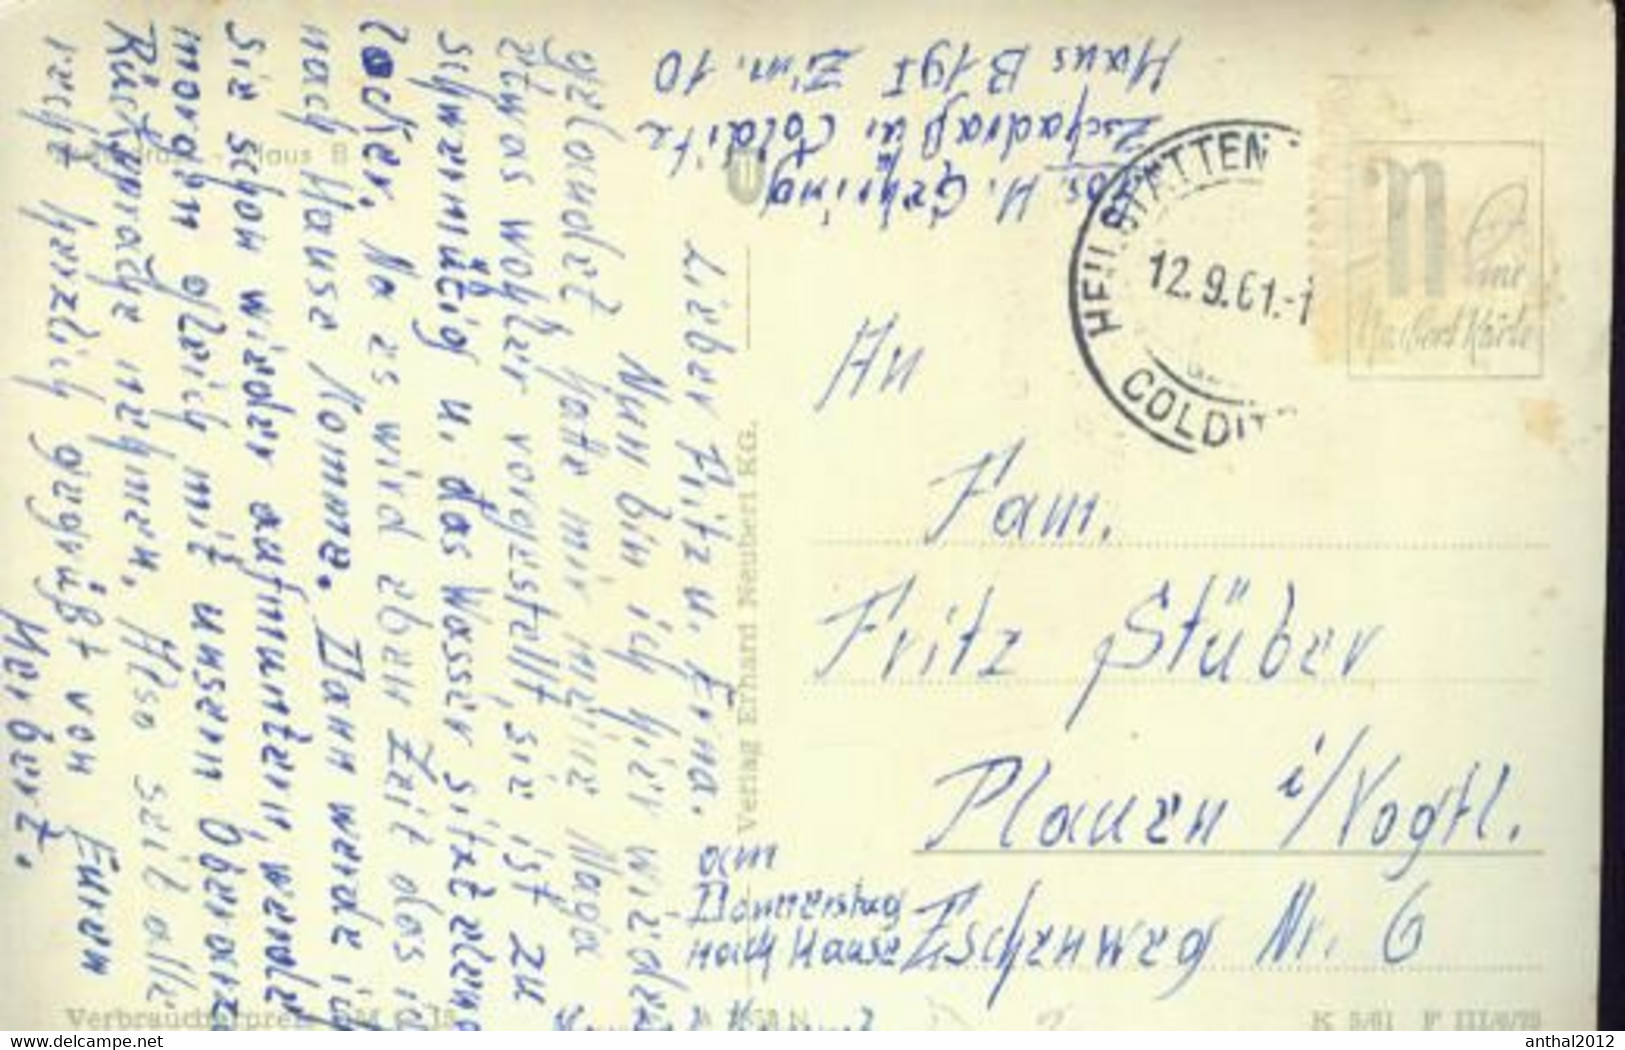 Abs. H. Gehring
Zschadraß ü. Colditz
Haus B 1 Zim. 10
Lieber Fritz u. Erna.
Nun bin ich hier wieder
gelandet hatte mir meine
etwas wohler vorgestellt, sie ist zu
schwermütig u. das Wasser sitzt
locker. Na es wird eben Zeit das ich
nach Hause komme. Dann werde ich
sie schon wieder aufmuntern, werde
morgen gleich mit unsern Oberarzt
Rücksprache nehmen. Also seit alle
recht herzlich gegrüßt von Euren
Herbert.
am
Donnerstag
nach Hause
HEILSTÄTTEN
12.9.61.-1
COLDIT
An
Fam.
Fritz Stüber
Plauen i/Vogtl.
Zschenweg Nr. 6
Haus B
Verlag Erhard Neubert KG.
Verbraucherpreis
K 5/61
anthal2012